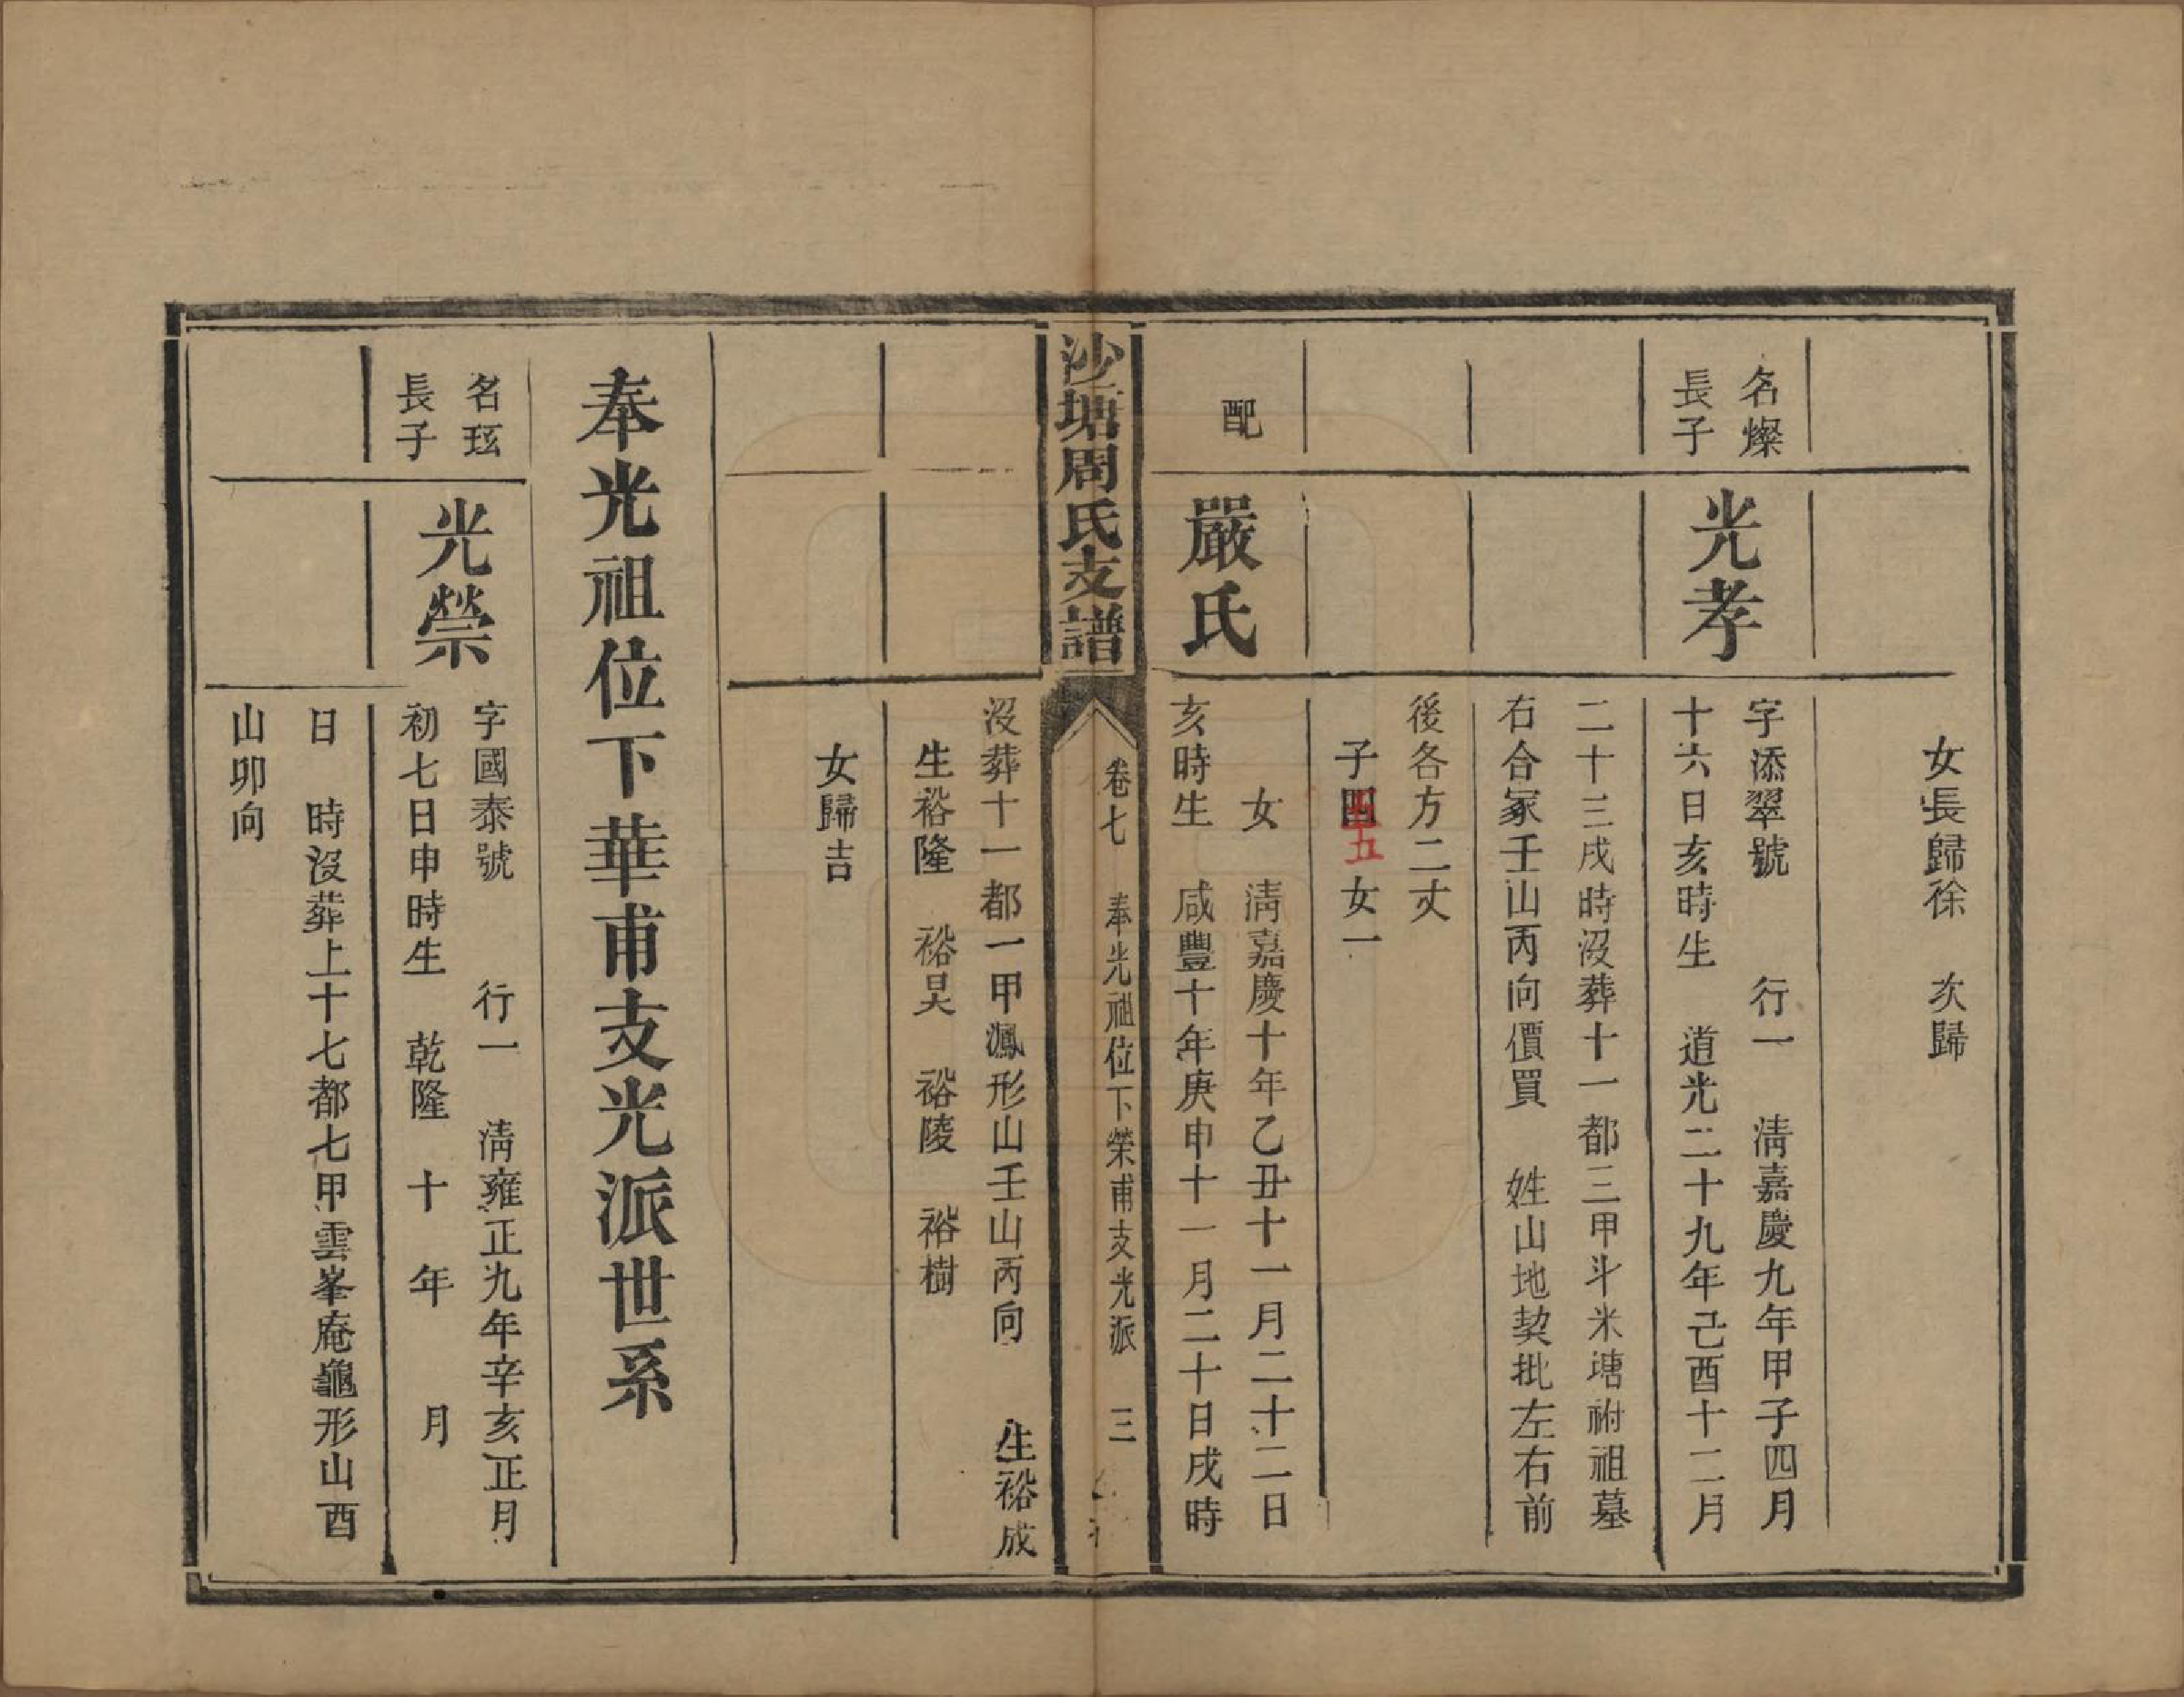 女長歸徐　次歸
名燦
長子
光孝
字添翠號　　行一　清嘉慶九年甲子四月
十六日亥時生　道光二十九年己酉十二月
二十三戌時沒葬十一都三甲斗米塘祔祖墓
右合冢壬山丙向價買　姓山地契批左右前
後各方二丈
子四五女一
配
嚴氏
女　清嘉慶十年乙丑十一月二十二日
亥時生　咸豐十年庚申十一月二十日戌時
沙塘周氏支譜
卷七　奉光祖位下榮甫支光派　三
沒葬十一都一甲鳳形山壬山丙向　生裕成
生裕隆　裕昊　裕陵　裕樹
女歸吉
奉光祖位下華甫支光派世系
名玹
長子
光榮
字國泰號　　行一　清雍正九年辛亥正月
初七日申時生　乾隆　十　年　　月
日　時沒葬上十七都七甲雲峯庵龜形山酉
山卯向